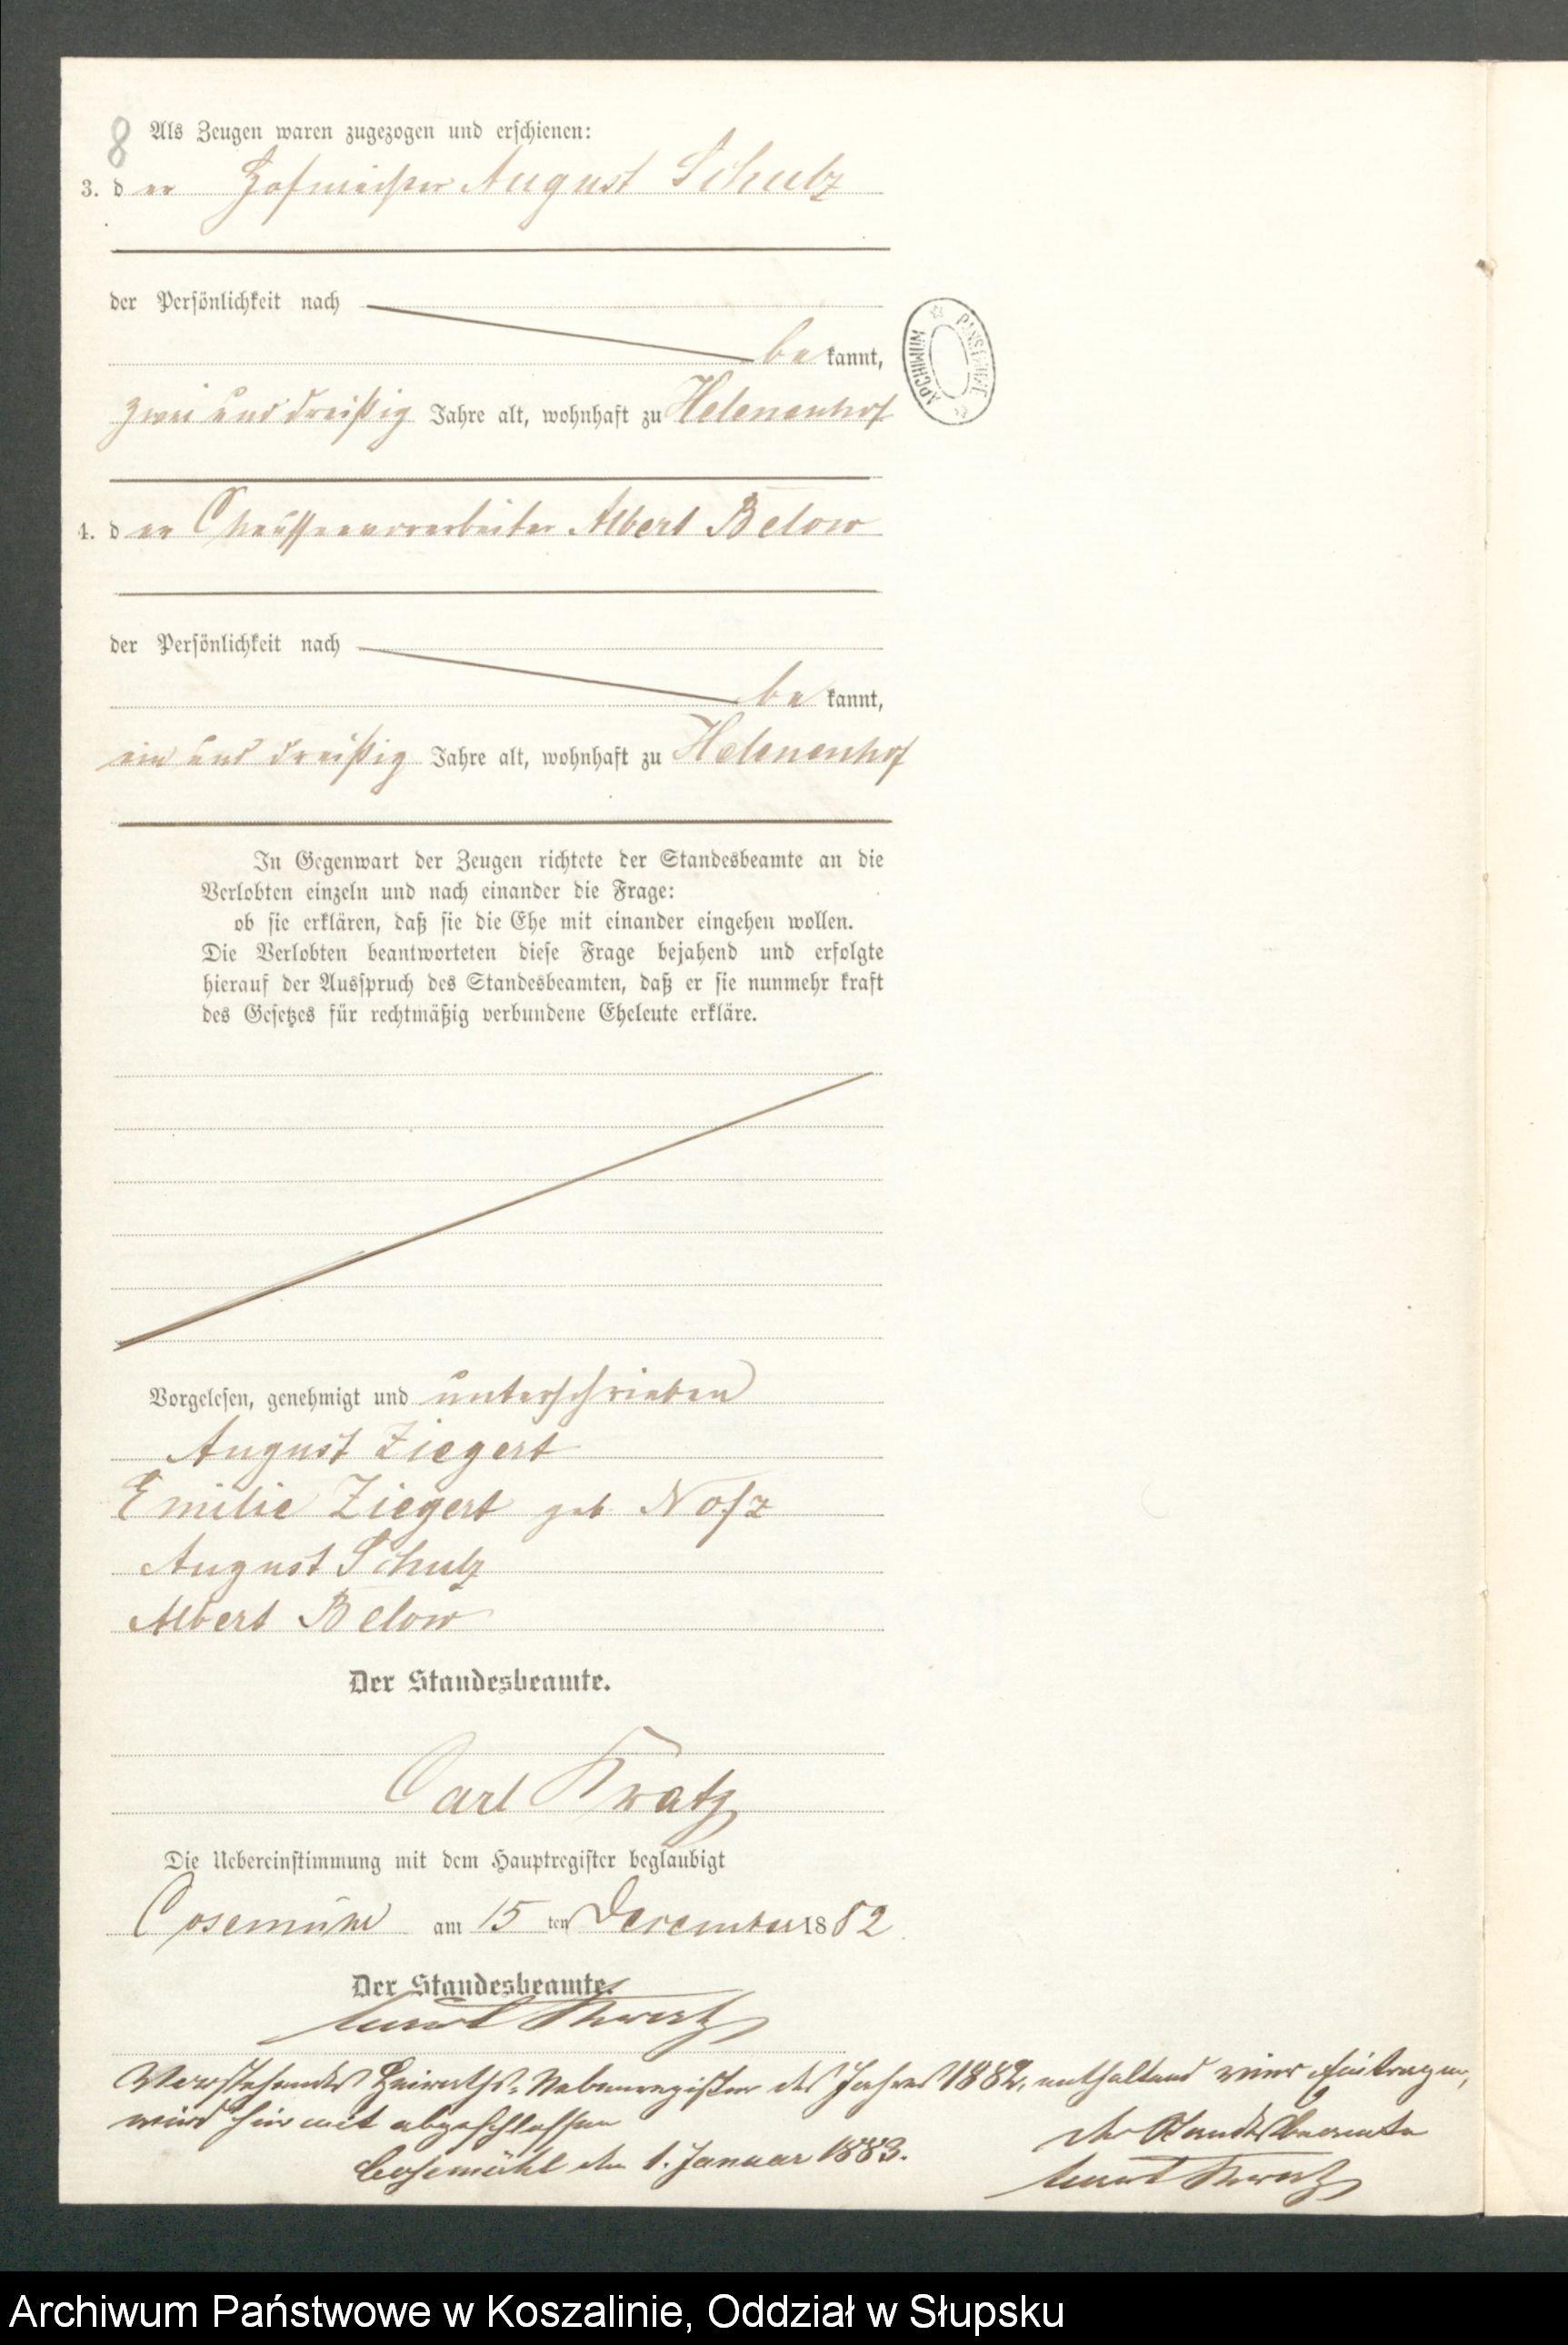 8
Als Zeugen waren zugezogen und erschienen:
3. der Hofmeister August Schulz
der Persönlichkeit nach
bekannt,
zwei und dreißig Jahre alt, wohnhaft zu Helenenhof
4. der Chausseevorarbeiter Albert Below
der Persönlichkeit nach
bekannt,
ein und dreißig Jahre alt, wohnhaft zu Helenenhof
In Gegenwart der Zeugen richtete der Standesbeamte an die
Verlobten einzeln und nach einander die Frage:
ob sie erklären, daß sie die Ehe mit einander eingehen wollen.
Die Verlobten beantworteten diese Frage bejahend und erfolgte
hierauf der Ausspruch des Standesbeamten, daß er sie nunmehr kraft
des Gesetzes für rechtmäßig verbundene Eheleute erkläre.
Vorgelesen, genehmigt und unterschrieben
August Ziegert
Emilie Ziegert geb Noſz
August Schulz
Albert Below
Der Standesbeamte.
Carl Kratz
Die Uebereinstimmung mit dem Hauptregister beglaubigt
Cosemühl am 15ten December 1882
Der Standesbeamte.
Vorstehendes Heiraths-Nebenregister des Jahres 1882, enthaltend vier Eintragungen,
wird hiermit abgeschlossen
Cosemühl den 1. Januar 1883.
Der Standesbeamte
ARCHIWUM PAŃSTWOWE
Archiwum Państwowe w Koszalinie, Oddział w Słupsku